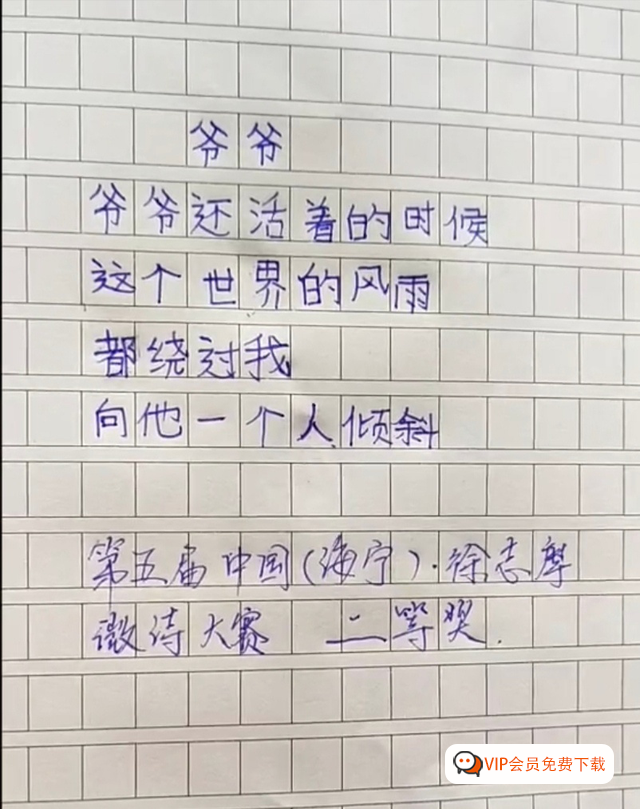 爷爷
爷爷还活着的时候
这个世界的风雨
都绕过我
向他一个人倾斜
第五届中国(海宁)·徐志摩
微诗大赛 二等奖.
VIP会员免费下载